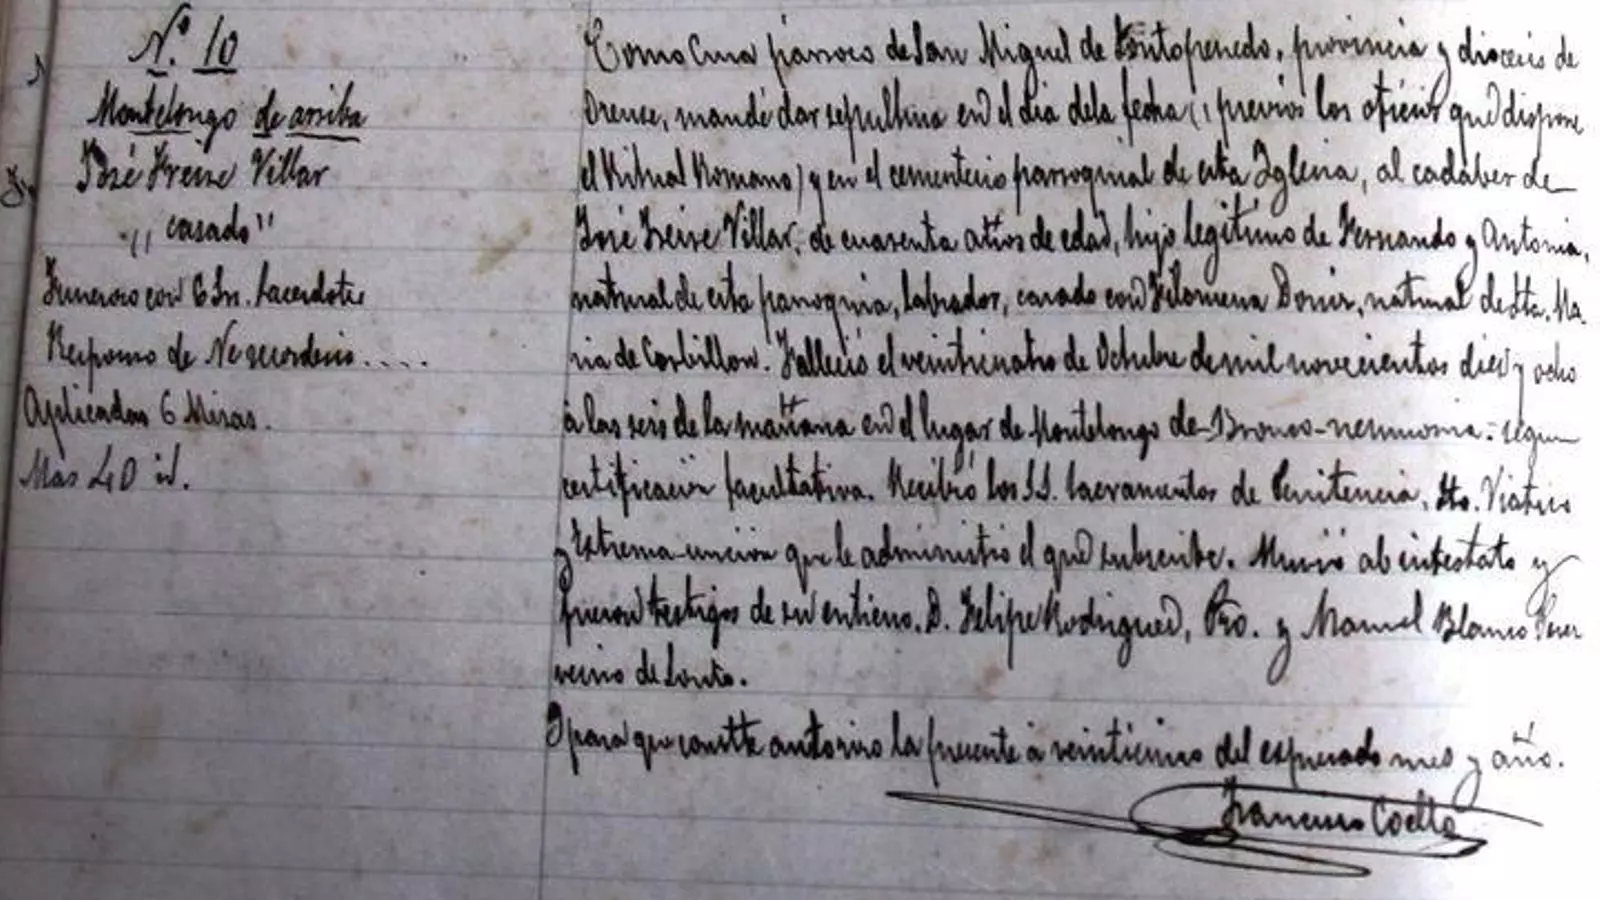 N.º 10
Montelongo de arriba
José Freire Villar
"casado"
Funeroro con 6 Sres. Sacerdotes
Responso de Ne recorderis....
Aplicadas 6 Misas.
Mas 40 id.
Como Cura párroco de San Miguel de Pontopenedo, provincia y diocesis de
Orense, mandé dar sepultura en el dia dela fecha (previos los oficios que dispone
el Ritual Romano) y en el cementerio parroquial de esta Iglesia, al cadaber de
José Freire Villar, de cuarenta años de edad, hijo legítimo de Fernando y Antonia,
natural de esta parroquia, labrador, casado con Filomena Donis, natural de Sta. Ma-
ria de Corbillon. Falleció el veinticuatro de Octubre de mil novecientos diez y ocho
á las seis de la mañana en el lugar de Montelongo de Bronco-neumonia = segun
certificación facultativa. Recibió los S.S. Sacramentos de Penitencia, Sto. Viatico
y Extrema-uncion que le administró el que subscribe. Murió abintestato y
fueron testigos de su entierro. D. Felipe Rodriguez, Pbro. y Manuel Blanco Perez
vecino de Souto.
Y para que conste autorizo la presente á veinticinco del espresado mes y año.
Francisco Coello